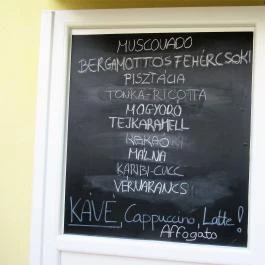 MUSCOVADO
BERGAMOTTOS FEHÉRCSOKI
PISZTÁCIA
TONKA-RICOTTA
MOGYORÓ
TEJKARAMELL
KAKAÓ
MÁLNA
KARIBI-CUCC
VÉRNARANCS
KÁVÉ, Cappuccino, Latte!
Affogato